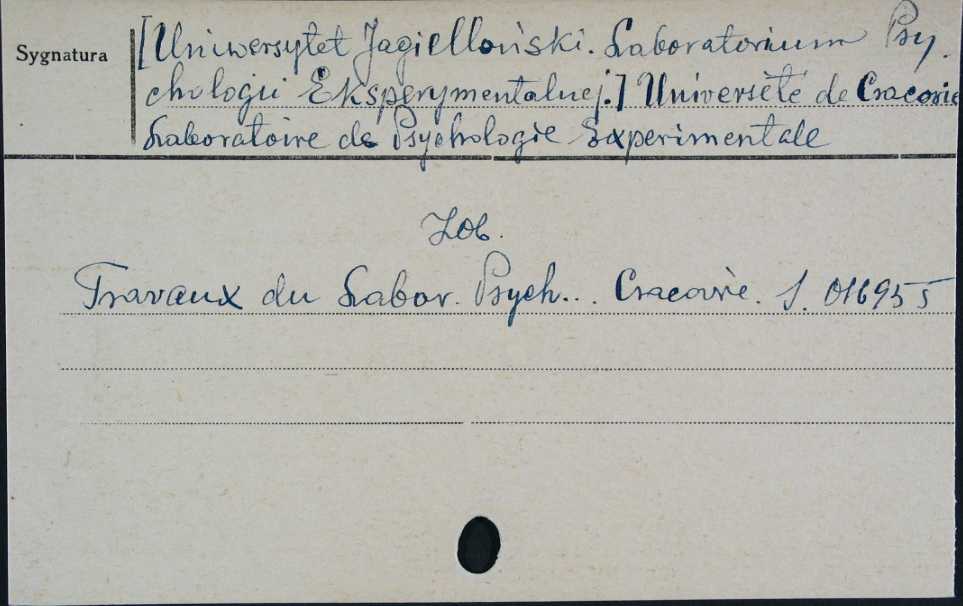 Sygnatura
[Uniwersytet Jagielloński. Laboratorium Psy
chologii Eksperymentalnej.] Université de Cracovie
Laboratoire de Psychologie Experimentale
Zob.
Travaux du Labor. Psych... Cracovie. S. 016955